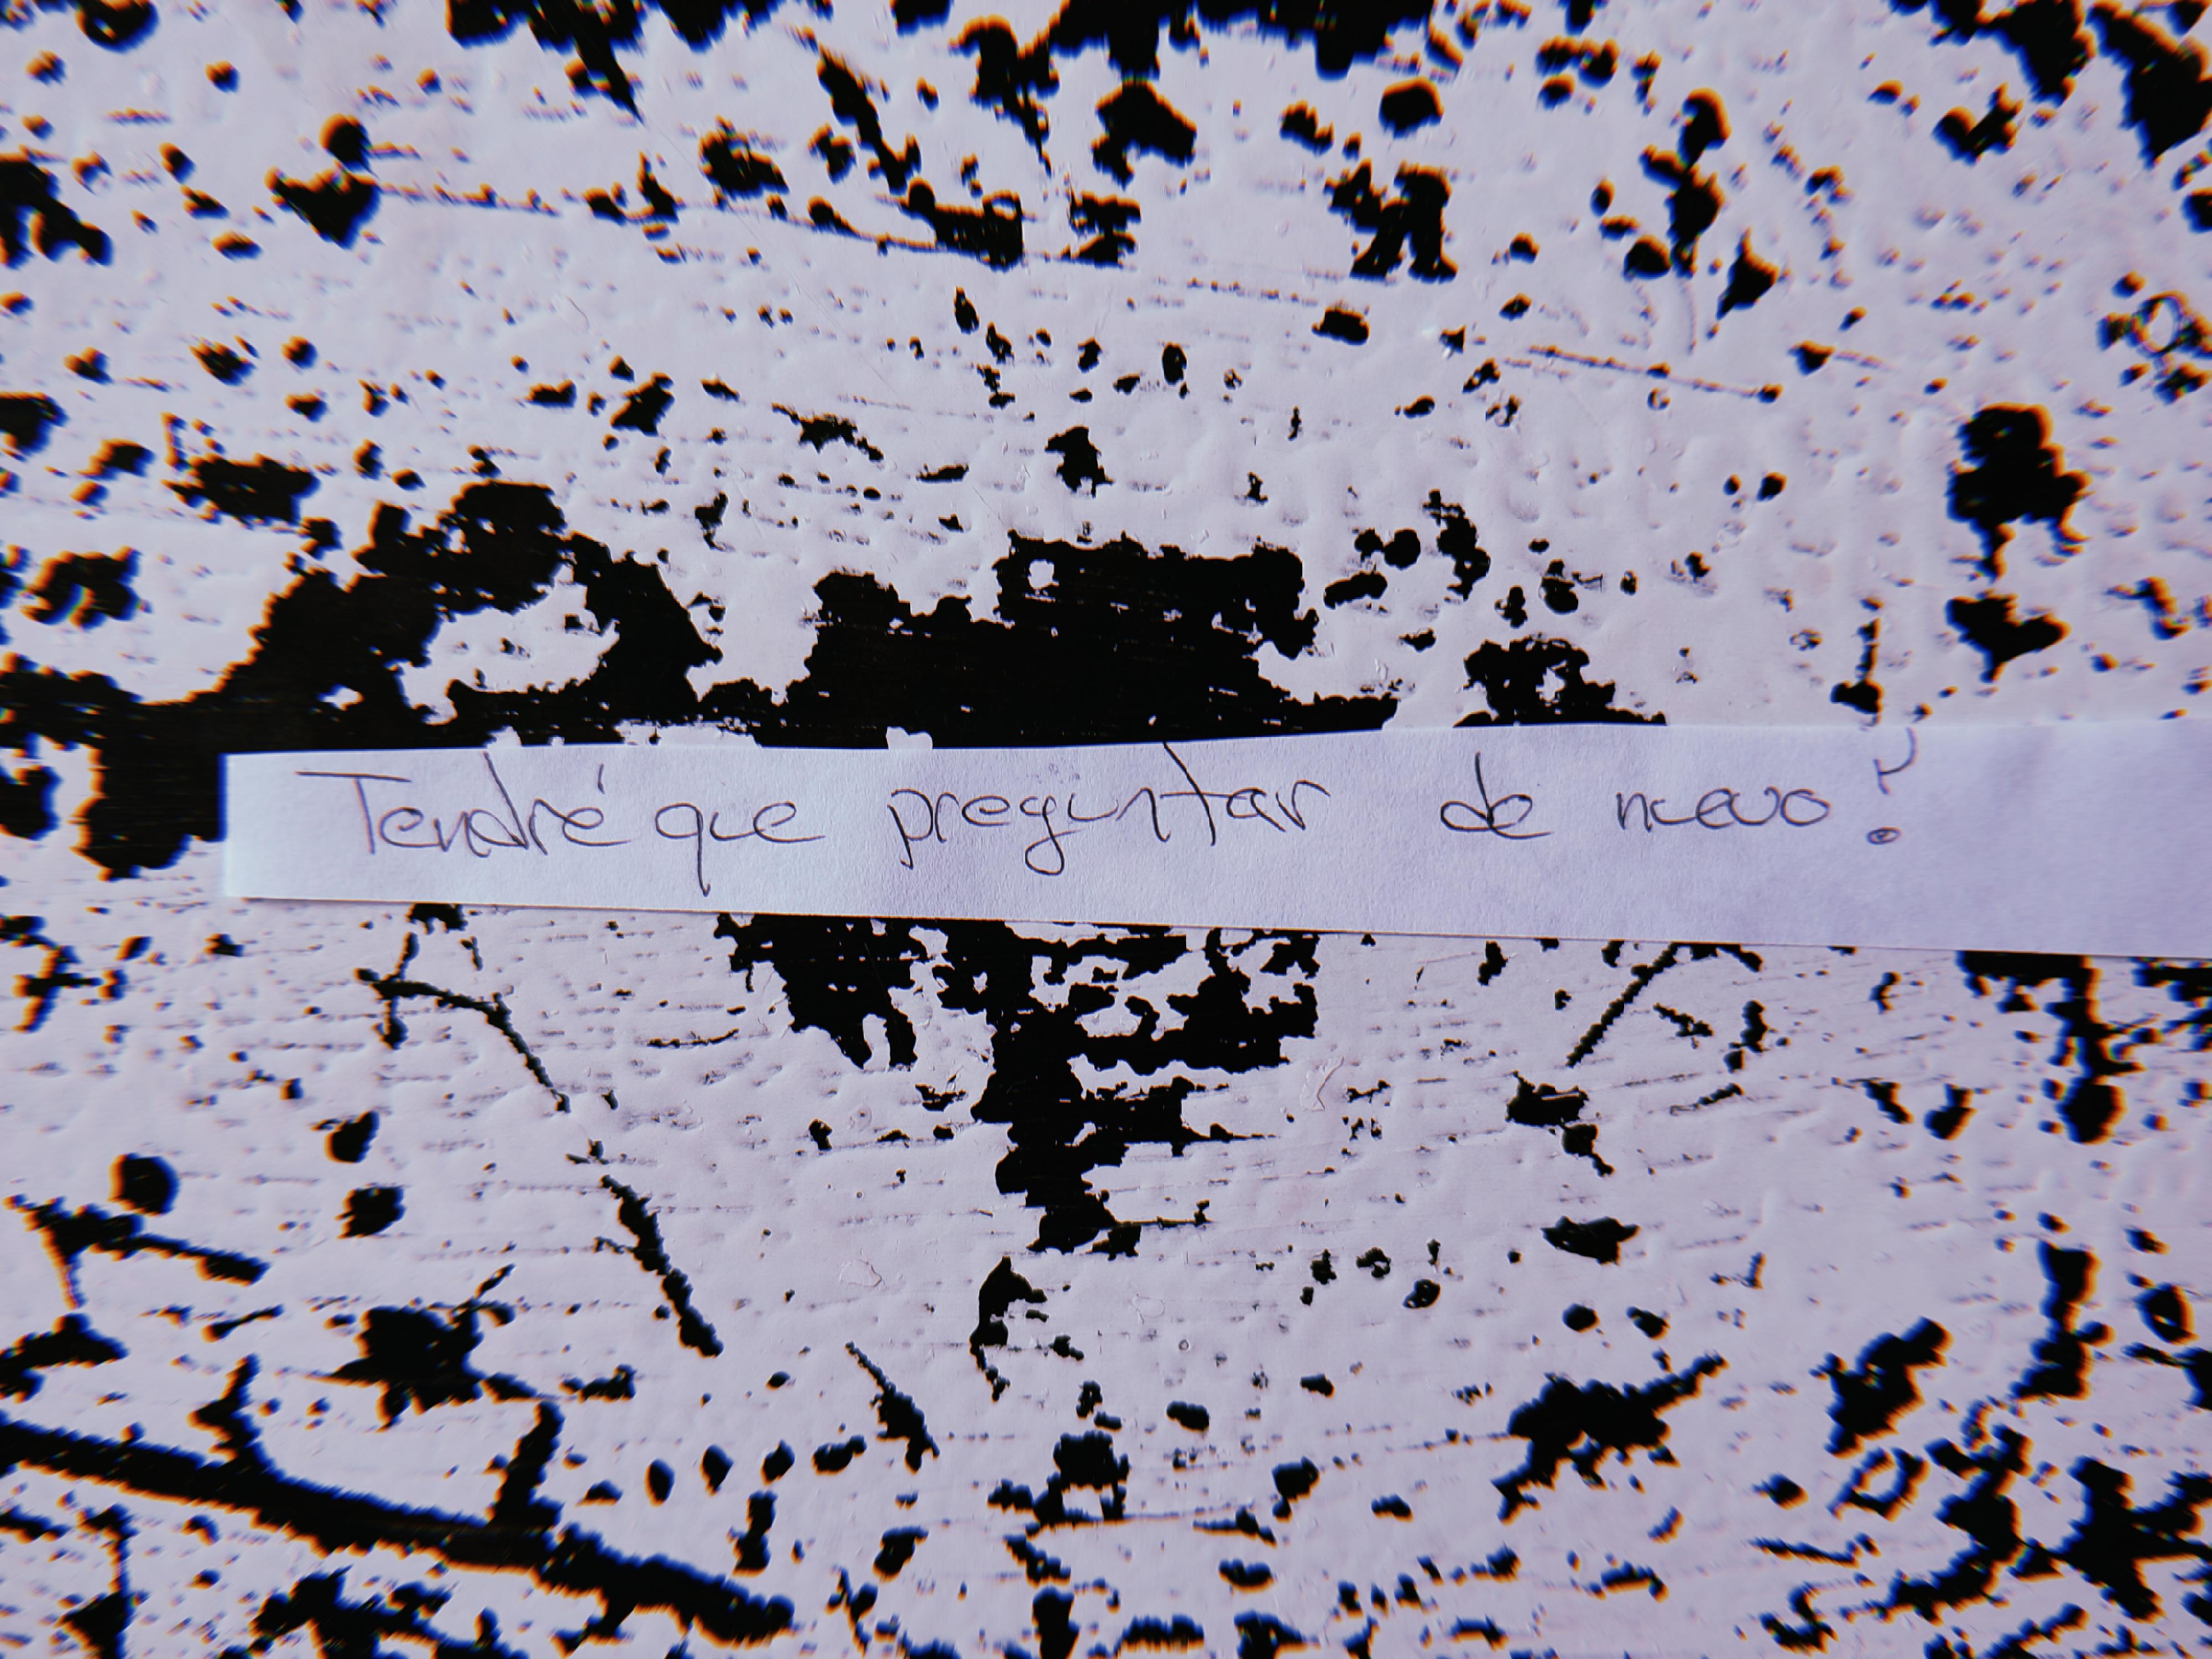 Tendré que preguntar de nuevo?